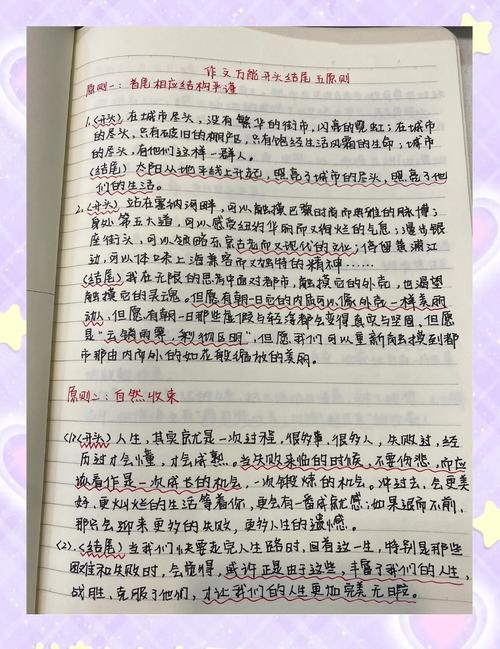 作文万能开头结尾五原则
原则一：首尾相应结构严谨
1.〈开头〉在城市尽头，没有繁华的街市，闪亮的霓虹；在城市
的尽头，只有破旧的棚户区，只有饱经生活风霜的生命；城市
的尽头，有他们这样一群人。
〈结尾〉太阳从地平线上升起，照亮了城市的尽头，照亮了他
们的生活。
2.〈开头〉站在塞纳河畔，可以触摸巴黎时尚而典雅的脉搏；
身处第五大道，可以感受纽约华丽而又灿烂的气息；漫步银
座街头，可以领略东京古老而又现代的文化；停留黄浦江
边，可以体味上海兼容而又独特的精神……
〈结尾〉我在无限的思考中面对都市，触摸它的外壳，也渴望
触摸它的灵魂。但愿有朝一日它的内质可以像外壳一样美丽
动人，但愿有朝一日那些虚假与轻薄都会变得真实与坚固，但愿
是“云销雨霁，彩彻区明”，但愿我们可以重新触摸到都
市那由内而外的如花般绽放的美丽。
原则二：自然收束
(1)〈开头〉人生，其实就是一次过程，很多事，很多人，失败过，经
历过才会懂，才会成熟。当失败来临的时候，不要伤悲，而应
该看作是一次成长的机会，一次锻炼的机会。冲过去，会更美
好，更灿烂的生活等着你，更会有一番成就感；如果退而不前，
那只会迎来更多的失败，更多人生的遗憾。
(2).〈结尾〉当我们快要走完人生路时，回首这一生，特别是那些
困难和失败时，会觉得，或许正是由于这些，丰富了我们的人生，
战胜、克服了他们，才让我们的人生更加完美无瑕。